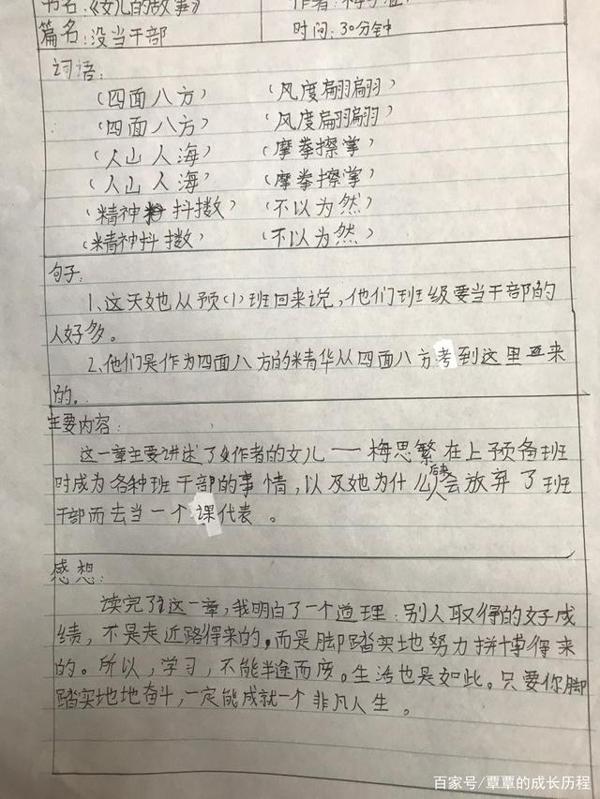 书名:《女儿的故事》 作者:梅子涵
篇名:没当干部 时间:30分钟
词语:
(四面八方) (风度翩翩)
(四面八方) (风度翩翩)
(人山人海) (摩拳擦掌)
(人山人海) (摩拳擦掌)
(精神抖擞) (不以为然)
(精神抖擞) (不以为然)
句子:
1、这天她从预(1)班回来说,他们班级要当干部的
人好多。
2、他们是作为四面八方的精华从四面八方考到这里来
的。
主要内容:
这一章主要讲述了作者的女儿——梅思繁在上预备班
时成为各种班干部的事情,以及她为什么后来会放弃了班
干部而去当一个课代表。
感想:
读完了这一章,我明白了一个道理:别人取得的好成
绩,不是走近路得来的,而是脚踏实地努力拼搏得来
的。所以,学习,不能半途而废。生活也是如此。只要你脚
踏实地地奋斗,一定能成就一个非凡人生。
百家号/覃覃的成长历程